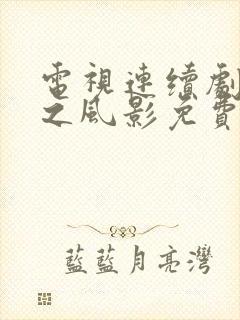 電視連續劇
之風影免費
藍藍月亮灣